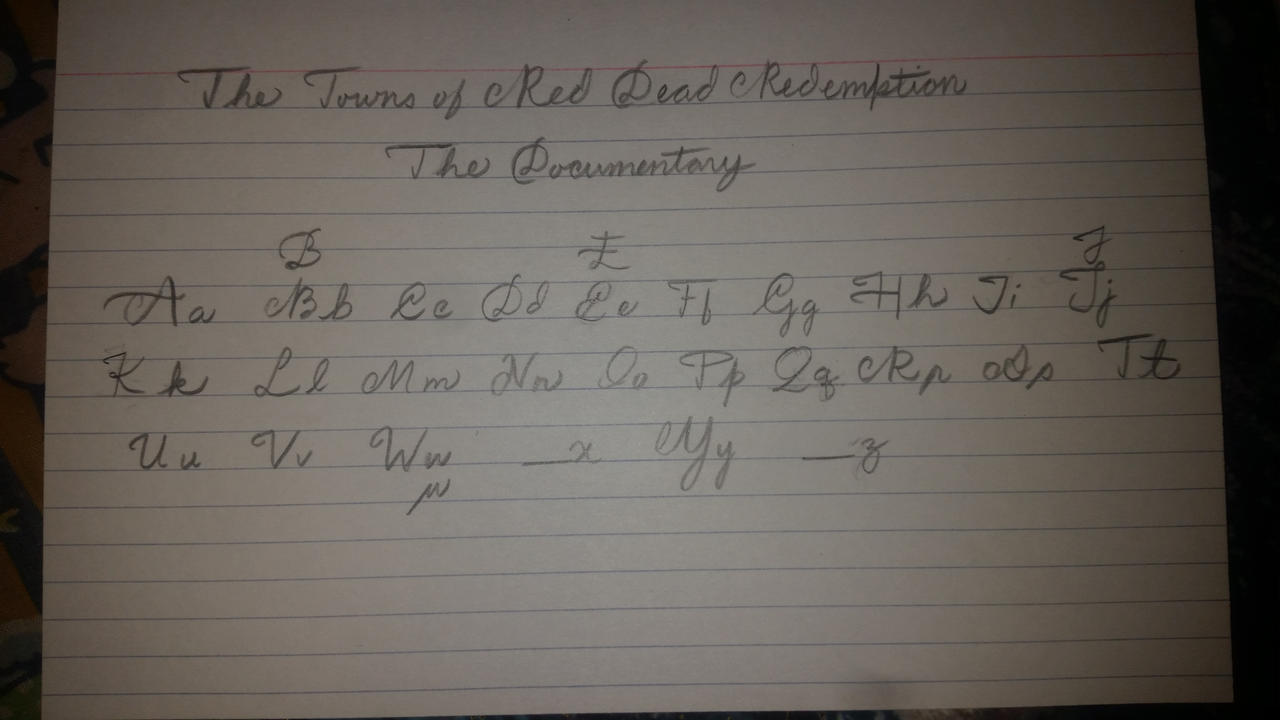 The Towns of Red Dead Redemption
The Documentary
B E J
Aa Bb Cc Dd Ee Ff Gg Hh Ii Jj
Kk Ll Mm Nn Oo Pp Qq Rr Ss Tt
Uu Vv Ww _x Yy _z
w